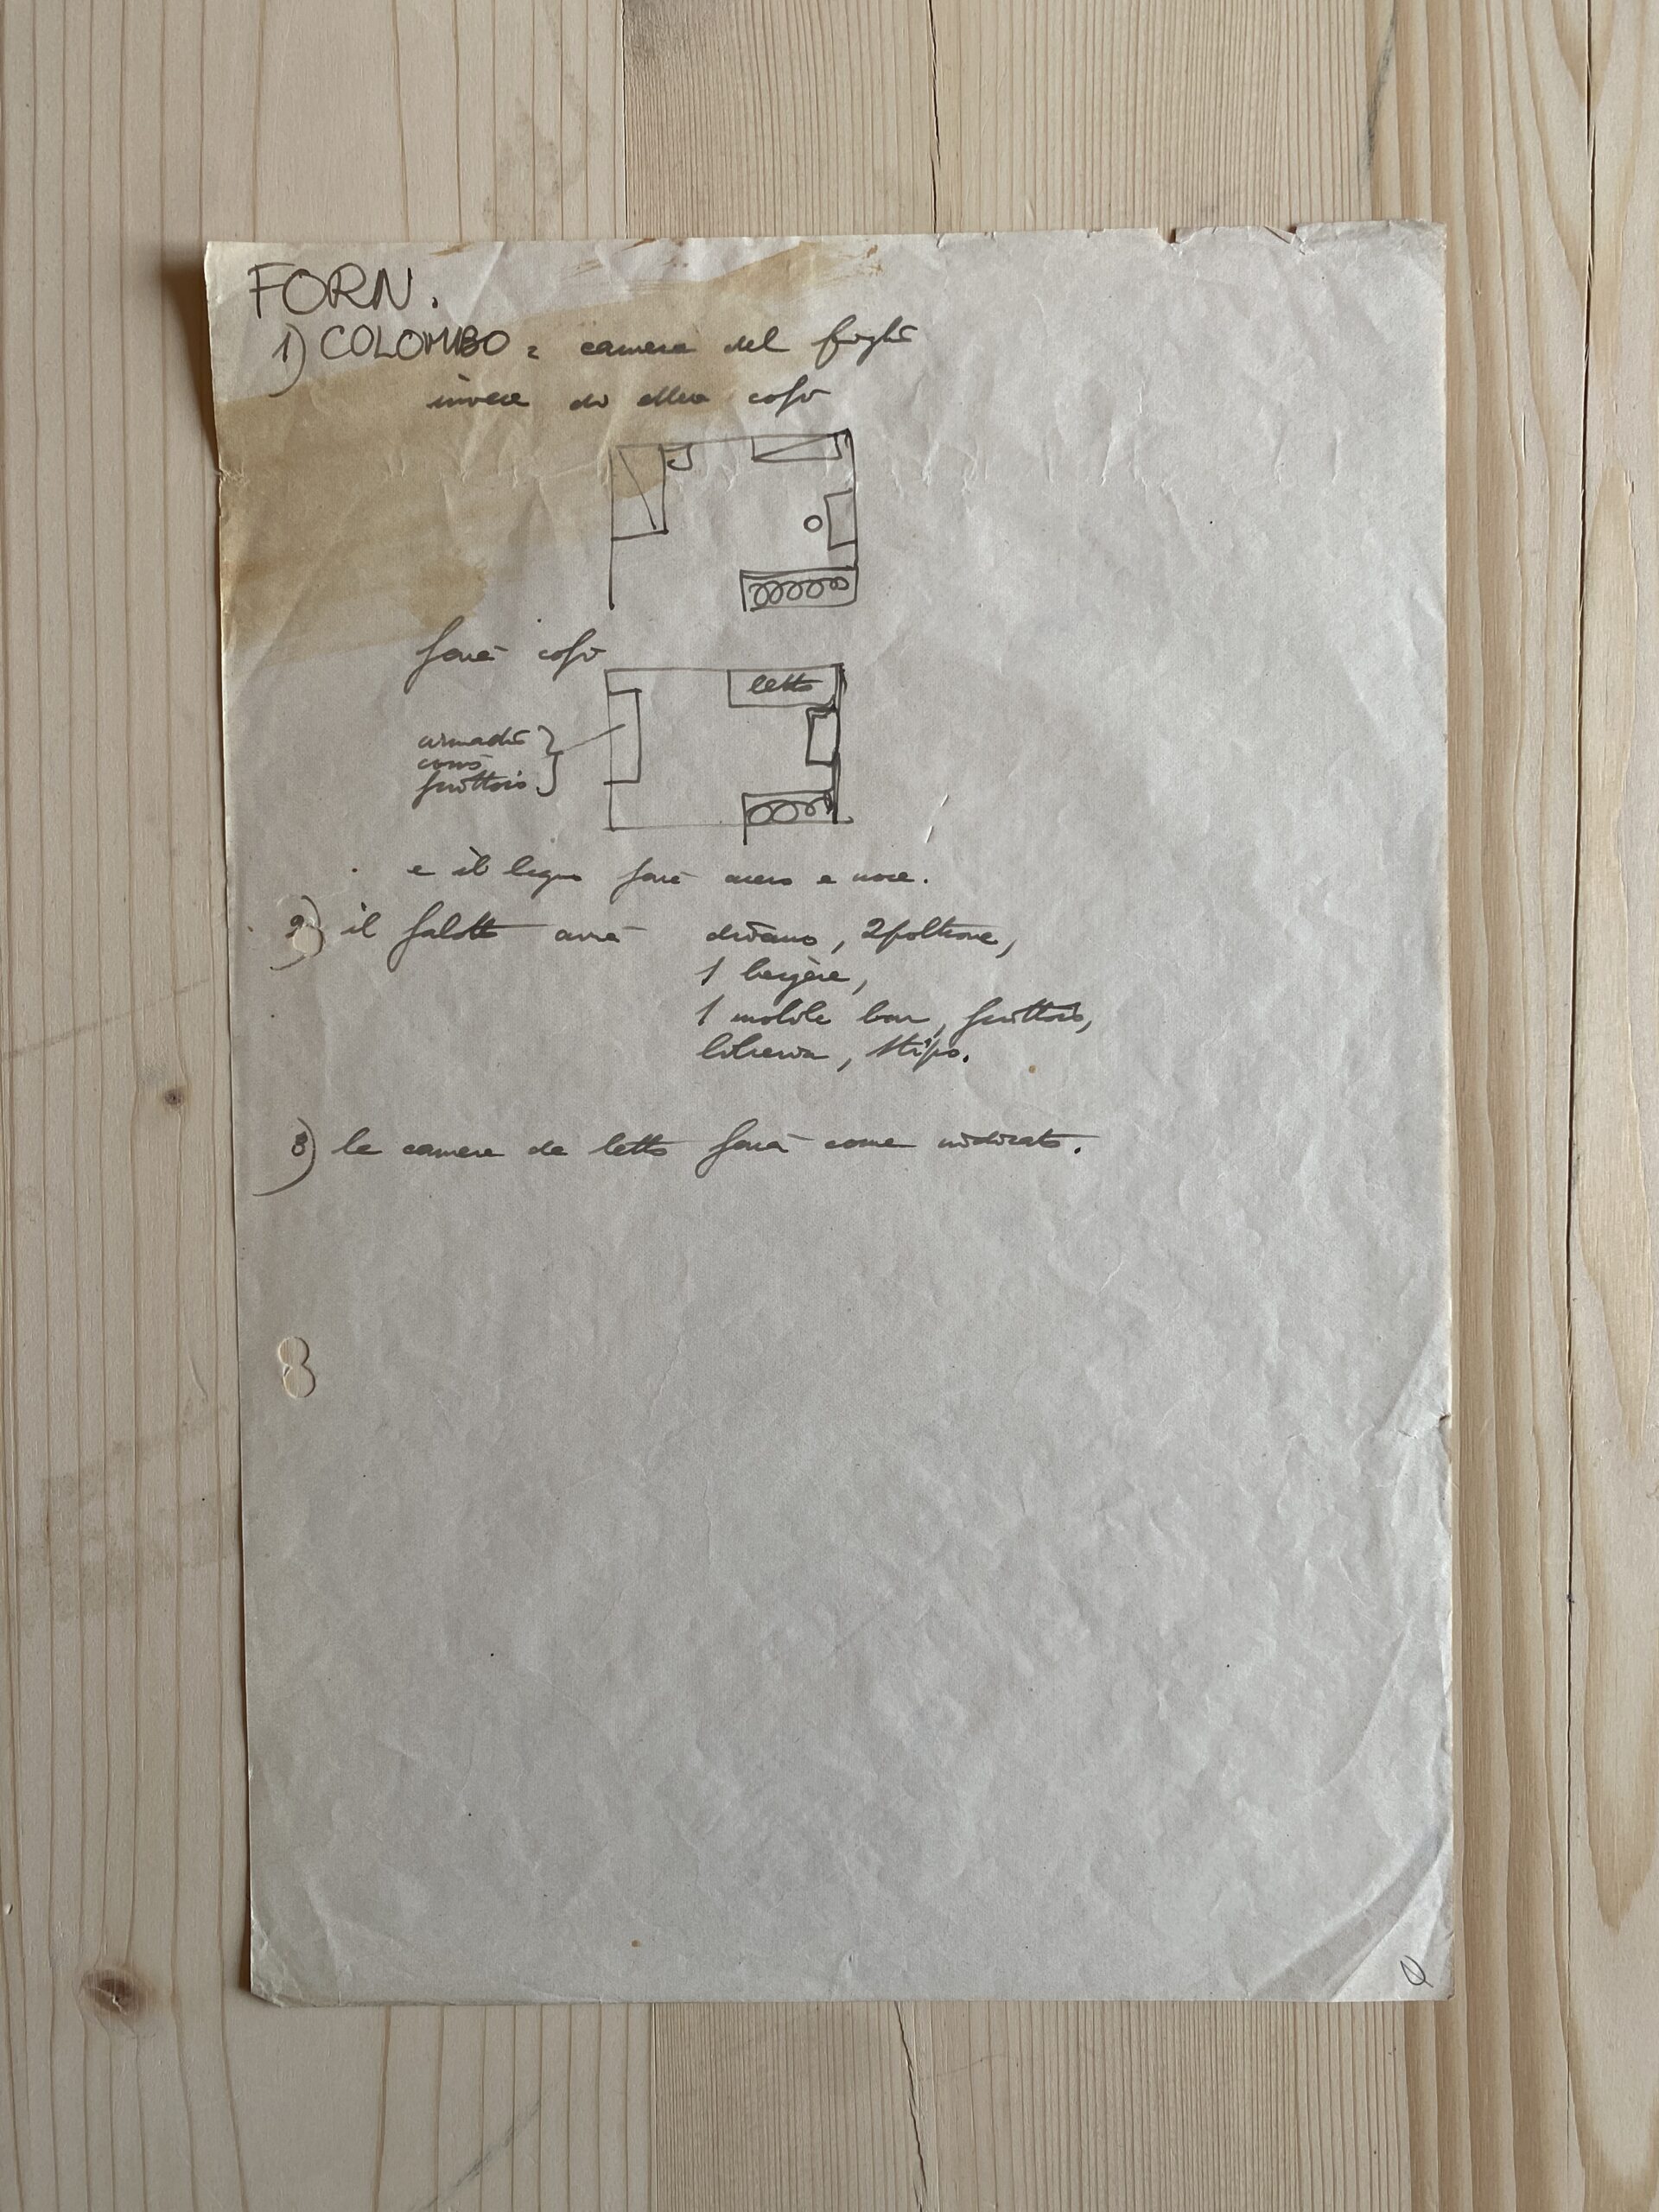 FORN.
1) COLOMBO = camera del figlio
invece di esser così
sarà così
letto
armadio
comò
scrittoio
e il legno sarà acero e noce.
2) il salotto avrà divano, 2 poltrone,
1 bergère,
1 mobile bar, scrittoio,
libreria, stipo.
3) la camera da letto sarà come indicato.